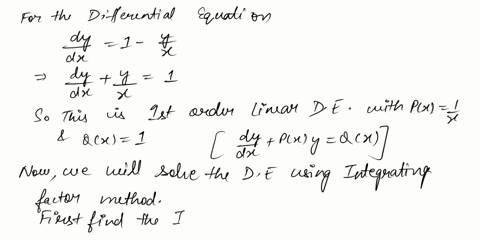 For the Differential Equation
dy/dx = 1 - y/x
⇒ dy/dx + y/x = 1
So This is 1st order Linear D.E. with P(x) = 1/x
& Q(x) = 1 [dy/dx + P(x) y = Q(x)]
Now, we will solve the D.E using Integrating
factor method.
First find the I